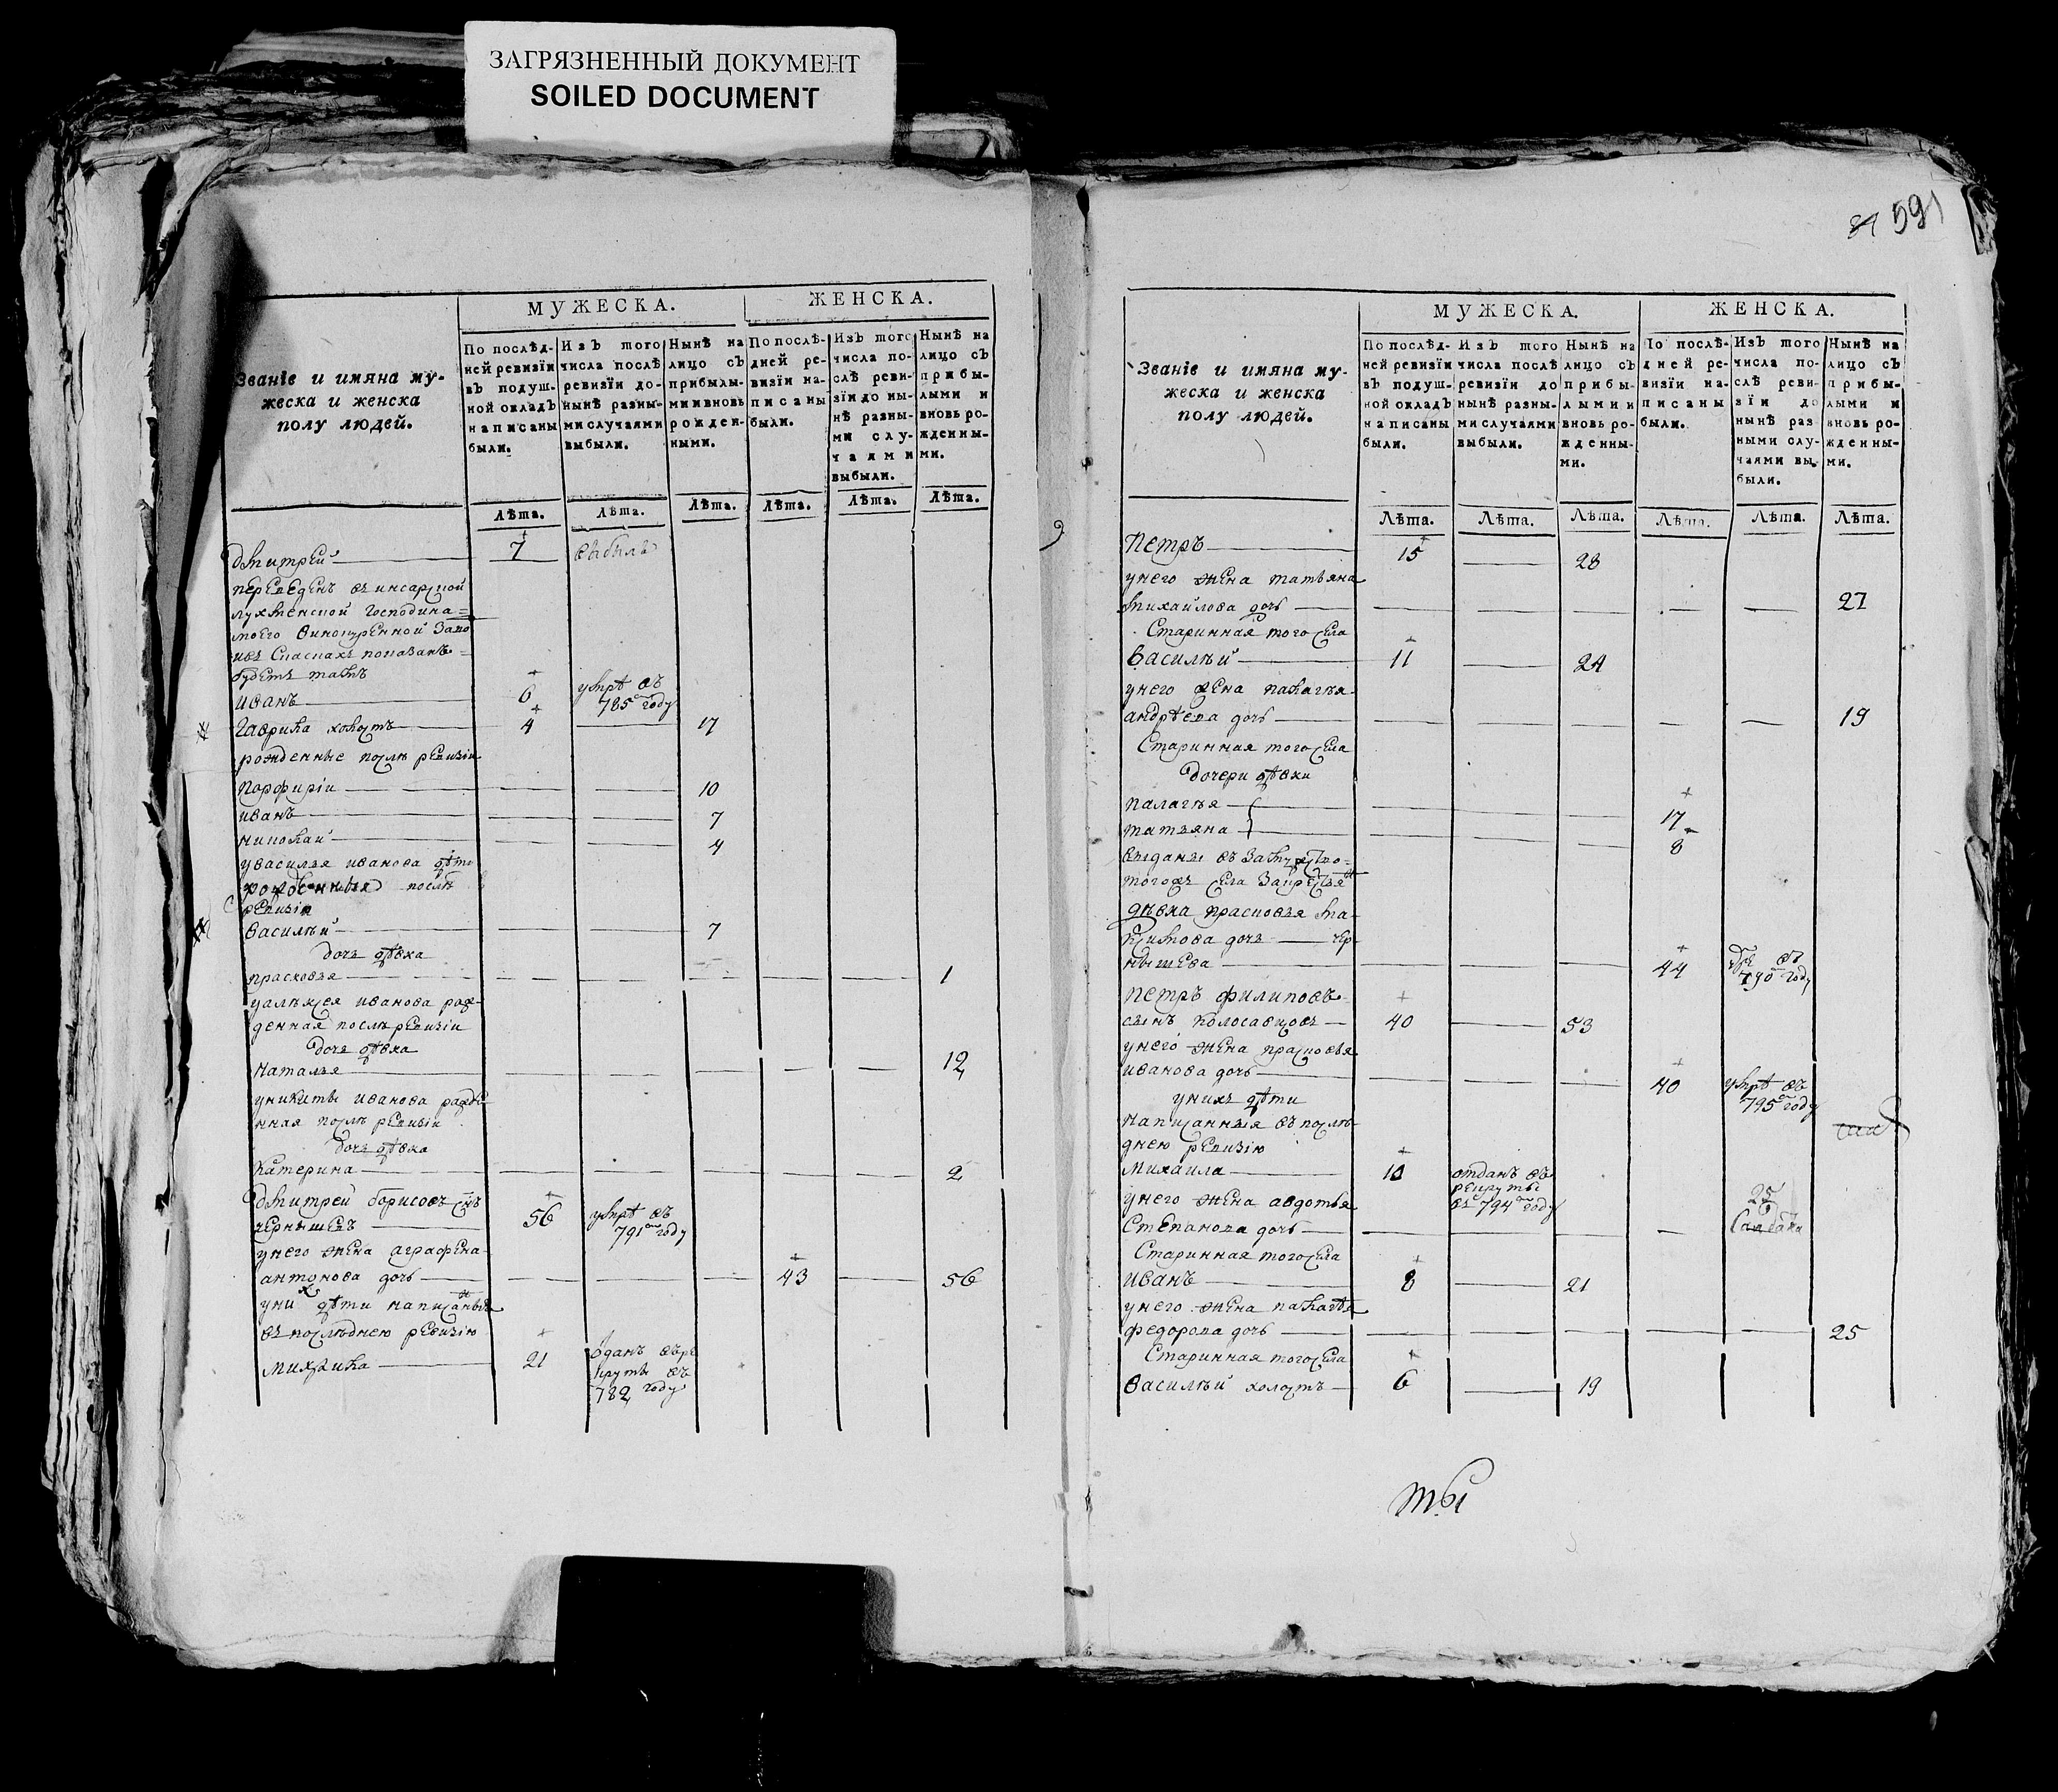 ЗАГРЯЗНЕННЫЙ ДОКУМЕНТ
SOILED DOCUMENT
МУЖЕСКА.
ЖЕНСКА.
Званїе и имяна му-
жеска и женска
полу людей.
По послѣд-
ней ревизїи
въ подуш-
ной окладъ
написаны
были.
Изъ того
числа послѣ
ревизїи до-
нынѣ разны-
ми случаями
выбыли.
Нынѣ на
лицо съ
прибылы-
ми и вновь
рожден-
ными.
По послѣ-
дней ре-
визїи на-
писаны
были.
Изъ того
числа по-
слѣ реви-
зїи до ны-
нѣ разны-
ми слу-
чаями
выбыли.
Нынѣ на
лицо съ
прибы-
лыми и
вновь ро-
жденны-
ми.
Лѣта. Лѣта. Лѣта. Лѣта. Лѣта. Лѣта.
дмитрей 7 выбылъ
переведенъ въ инсарской
моего винокуренной заво
будетъ тамъ
иванъ 6 умре въ 785 году
гаврила холостъ 4 17
рожденные послѣ ревизіи
порфиріи 10
иванъ 7
николай 4
увасилья иванова дѣти
рожденныя послѣ
ревизіи
василѣй 7
дочь дѣвка
прасковья 1
уалѣксея иванова рож-
денная послѣ ревизіи
дочь дѣвка
наталья 12
уникиты иванова рожде
нная послѣ ревизіи
дочь дѣвка
катерина 2
дмитрей борисовъ снъ
чернышевъ 56 умре въ 791 году
унего жена аграфена
антонова дочь 43 56
уних дѣти написанныя
въ послѣднею ревизію
михайла 21 оданъ въ ре
круты въ
782 году
591
МУЖЕСКА.
ЖЕНСКА.
Званїе и имяна му-
жеска и женска
полу людей.
По послѣд-
ней ревизїи
въ подуш-
ной окладъ
написаны
были.
Изъ того
числа послѣ
ревизїи до
нынѣ разны-
ми случаями
выбыли.
Нынѣ на
лицо съ
прибы-
лыми и
вновь ро-
жденны-
ми.
По послѣ-
дней ре-
визїи на-
писаны
были.
Изъ того
числа по-
слѣ реви-
зїи до
нынѣ раз
ными слу-
чаями вы-
были.
Нынѣ на
лицо съ
прибы-
лыми и
вновь ро-
жденны-
ми.
Лѣта. Лѣта. Лѣта. Лѣта. Лѣта. Лѣта.
петръ 15 28
унего жена татьяна
михайлова дочь 27
Старинная того села
василѣй 11 24
унего жена палагѣя
андрѣева дочь 19
Старинная того села
дочери дѣвки
палагѣя 17
татьяна 8
выданы въ замужство
тогожъ села
дѣвка прасковья ма-
ксимова дочь чер-
нышева 44 790 году
петръ филиповъ
сынъ колосавцовъ 40 53
унего жена прасковья
иванова дочь 40 умре въ
795 году
унихъ дѣти
написанныя въ послѣ-
днею ревизію
михаила 10 отданъ въ
рекруты
въ 794 году
унего жена авдотья
степанова дочь 25
Старинная того села
иванъ 8 21
унего жена палагѣя
федорова дочь 25
Старинная того села
василѣй холостъ 6 19